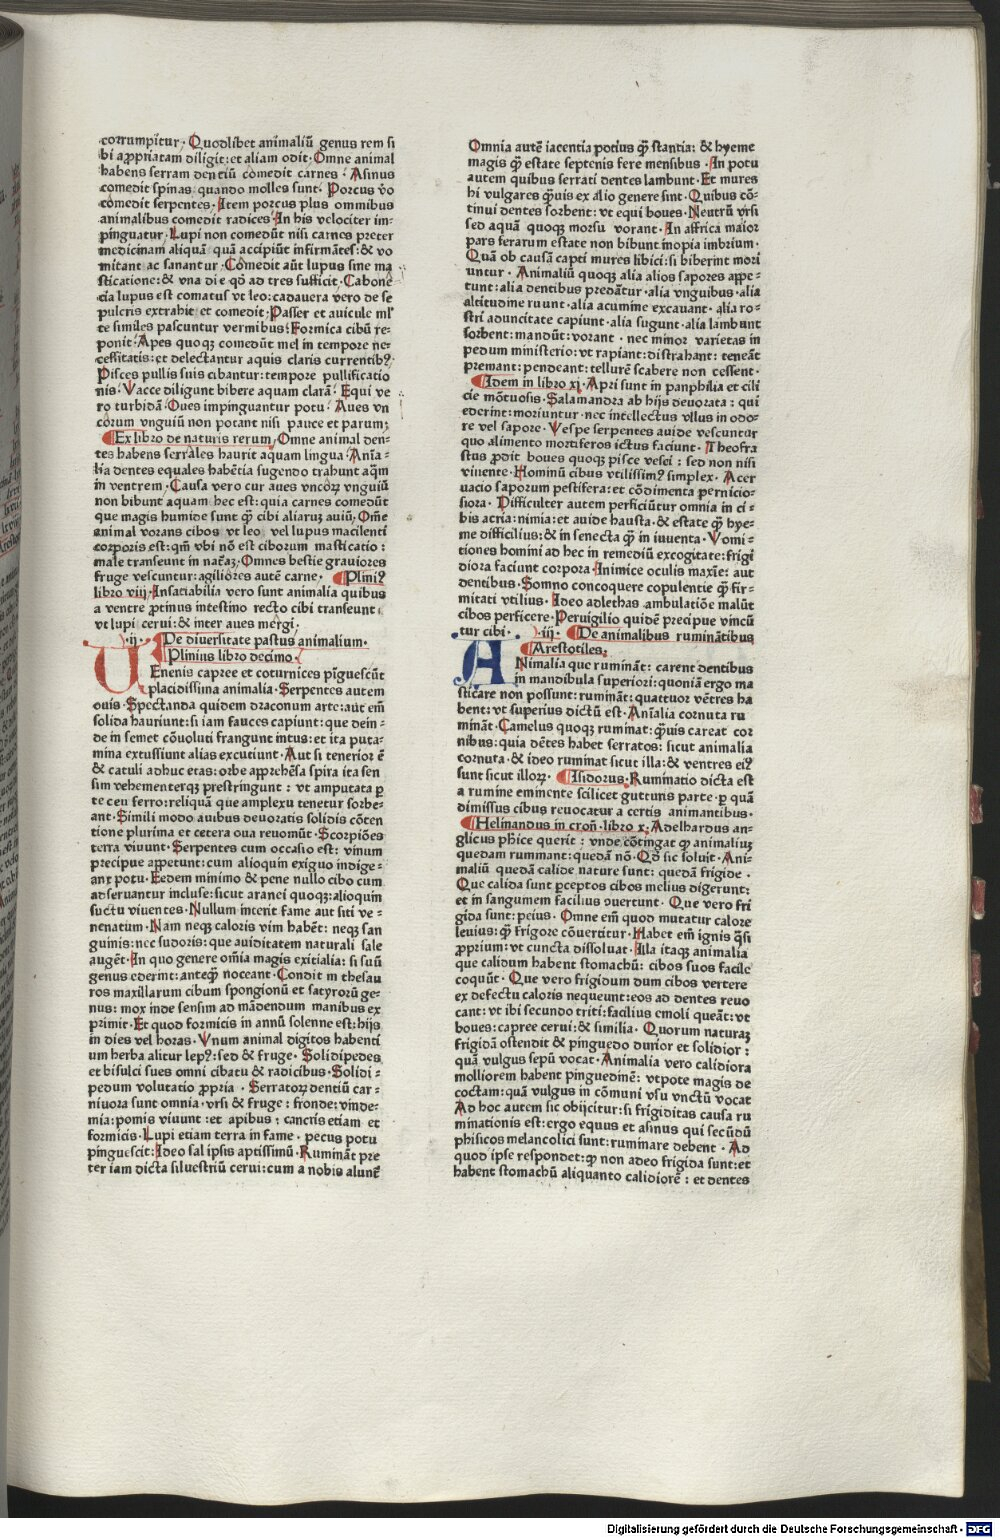 corrumpitur. Quodlibet animaliū genus rem si
bi appropriatam diligit: et aliam odit. Omne animal
habens serram dentiū comedit carnes. Asinus
comedit spinas quando molles sunt. Porcus ꝟo
comedit serpentes. Item porcus plus omnibus
animalibus comedit radices. In his velociter im-
pinguatur. Lupi non comedūt nisi carnes preter
medicinam aliquā quā accipiūt infirmātes: & vo
mitant ac sanantur. Comedit aūt lupus sine ma
sticatione: & vna die qd ad tres sufficit.
cia lupus est comatus vt leo: cadauera vero de se
pulcris extrahit et comedit. Passer et auicule ml'
te similes pascuntur vermibus. Formica cibū re-
ponit. Apes quoqꝫ comedūt mel in tempore ne-
cessitatis: et delectantur aquis claris currentibꝰ.
Pisces pullis suis cibantur: tempore pullificatio
nis. Vacce diligunt bibere aquam clarā. Equi ve
ro turbidā. Oues impinguantur potu. Aues vn
corum vnguiū non potant nisi pauce et parum.
Ex libro de naturis rerum. Omne animal den-
tes habens serrales haurit aquam lingua. Anīa-
lia dentes equales habētia sugendo trahunt aqm̄
in ventrem. Causa vero cur aues vncorꝫ vnguiū
non bibunt aquam hec est: quia carnes comedūt
que magis humide sunt qꝫ cibi aliarum auiū. Om̄e
animal vorans cibos vt leo vel lupus macilenti
corporis est: qm̄ vbi nō est ciborum masticatio:
male transeunt in naturam. Omnes bestie grauiores
fruge vescuntur: agiliores autē carne. Pliniꝰ
libro viij. Insatiabilia vero sunt animalia quibus
a ventre protinus intestino recto cibi transeunt
vt lupi cerui: & inter aues mergi.
.ij. De diuersitate pastus animalium.
Plinius libro decimo.
VEnenis capree et coturnices piguescūt
placidissima animalia. Serpentes autem
ouis. Spectanda quidem draconum arte: aut em̄
solida hauriunt: si iam fauces capiunt: que dein-
de in semet cōuoluti frangunt intus: et ita puta-
mina extussiunt alias excutiunt. Aut si tenerior ē
& catuli adhuc etas: orbe apprehēsa spira ita sen
sim vehementerqꝫ prestringunt: vt amputata p
te ceu ferro: reliquā que amplexu tenetur sorbe-
ant. Simili modo auibus deuoratis solidis cōten
tione plurima et cetera oua reuomūt. Scorpiōes
terra viuunt. Serpentes cum occasio est: vinum
precipue appetunt: cum alioquin exiguo indige-
ant potu. Eedem minimo & pene nullo cibo cum
adseruantur incluse: sicut aranei quoqꝫ: alioquin
suctu viuentes. Nullum interit fame aut siti ve-
nenatum. Nam neqꝫ caloris vim habēt: neqꝫ san
guinis: nec sudoris: que auiditatem naturali sale
augēt. In quo genere omīa magis exitialia: si suū
genus ederint: anteqꝫ noceant. Condit in thesau
ros maxillarum cibum spongionū et satyrorū ge-
nus: mox inde sensim ad mādendum manibus ex
primit. Et quod formicis in annū solenne est: hijs
in dies vel horas. Vnum animal digitos habenti
um herba alitur lepꝰ: sed & fruge. Solidipedes
et bisulci sues omni cibatu & radicibus. Solidi-
pedum volutatio propria. Serratorꝫ dentiū car-
niuora sunt omnia. vrsi & fruge: fronde: vinde-
mia: pomis viuunt: et apibus: cancris etiam et
formicis. Lupi etiam terra in fame. pecus potu
pinguescit: Ideo sal ipsis aptissimū. Rumināt pre
ter iam dicta siluestriū cerui: cum a nobis alunt̄
Omnia autē iacentia potius qꝫ stantia: & hyeme
magis qꝫ estate septenis fere mensibus. In potu
autem quibus serrati dentes lambunt. Et mures
hi vulgares quis ex alio genere sint. Quibus cō-
tinui dentes sorbent: vt equi boues. Neutrū vrsi
sed aquā quoqꝫ morsu vorant. In affrica maior
pars ferarum estate non bibunt inopia imbrium.
Quā ob causā capti mures libici: si biberint mori
untur. Animaliū quoqꝫ alia alios sapores appe-
tunt: alia dentibus predātur. alia vnguibus. alia
altitudine ruunt. alia acumine excauant. alia ro-
stri aduncitate capiunt. alia sugunt. alia lambunt
sorbent: mandūt: vorant. nec minor varietas in
pedum ministerio: vt rapiant: distrahant: teneāt
premant: pendeant: tellurē scabere non cessent.
Idem in libro xj. Apri sunt in panphilia et cili
cie mōtuosis. Salamandra ab hijs deuorata: qui
ederint: moriuntur. nec intellectus vllus in odo-
re vel sapore. Vespe serpentes auide vescuntur
quo alimento mortiferos ictus faciunt. Theofra
stus prodit boues quoqꝫ pisce vesci: sed non nisi
viuente. Hominū cibus vtilissimꝰ simplex. Acer
uacio saporum pestifera: et cōdimenta pernicio-
siora. Difficulter autem perficiūtur omnia in ci-
bis acria: nimia: et auide hausta. & estate qꝫ hye-
me difficilius: & in senecta qꝫ in iuuenta. Vomi-
tiones homini ad hec in remediū excogitate: frigi
diora faciunt corpora. Inimice oculis maxīe: aut
dentibus. Somno concoquere copulentie qꝫ fir-
mitati vtilius. Ideo adlethas ambulatiōe malūt
cibos perficere. Peruigilio quidē precipue vincū
tur cibi. .iij. De animalibus ruminātibus
Arestotiles.
ANimalia que rumināt: carent dentibus
in mandibula superiori: quoniā ergo ma
sticare non possunt: rumināt: quattuor vētres ha
bent: vt superius dictū est. Anīalia cornuta ru
mināt. Camelus quoqꝫ ruminat: quis careat cor
nibus: quia dētes habet serratos: sicut animalia
cornuta. & ideo ruminat sicut illa: & ventres eiꝰ
sunt sicut illorꝫ. Isidorus. Ruminatio dicta est
a rumine eminente scilicet gutturis parte. p quā
dimissus cibus reuocatur a certis animantibus.
Helinandus in croñ. libro x. Adelhardus an-
glicus phice querit: vnde cōtingat qꝫ animaliuꝫ
quedam ruminant: quedā nō. Qd sic soluit. Ani-
maliū quedā calide nature sunt: quedā frigide.
Que calida sunt perceptos cibos melius digerunt:
et in sanguinem facilius vertunt. Que vero fri
gida sunt: peius. Omne em̄ quod mutatur calore
leuius: qꝫ frigore cōuertitur. Habet em̄ ignis qsi
proprium: vt cuncta dissoluat. Illa itaqꝫ animalia
que calidum habent stomachū: cibos suos facile
coquūt. Que vero frigidum dum cibos vertere
ex defectu caloris nequeunt: eos ad dentes reuo
cant: vt ibi secundo triti: facilius emoli queāt: vt
boues: capree cerui: & similia. Quorum naturaꝫ
frigidā ostendit & pinguedo durior et solidior:
quā vulgus sepū vocat. Animalia vero calidiora
molliorem habent pinguedinē: vtpote magis de
coctam: quā vulgus in cōmuni vsu vnctū vocat
Ad hoc autem sic obijcitur: si frigiditas causa ru
minationis est: ergo equus et asinus qui secūdū
phisicos melancolici sunt: ruminare debent. Ad
quod ipse respondet: qꝫ non adeo frigida sunt: et
habent stomachū aliquanto calidiorē: et dentes
Digitalisierung gefördert durch die Deutsche Forschungsgemeinschaft - DFG